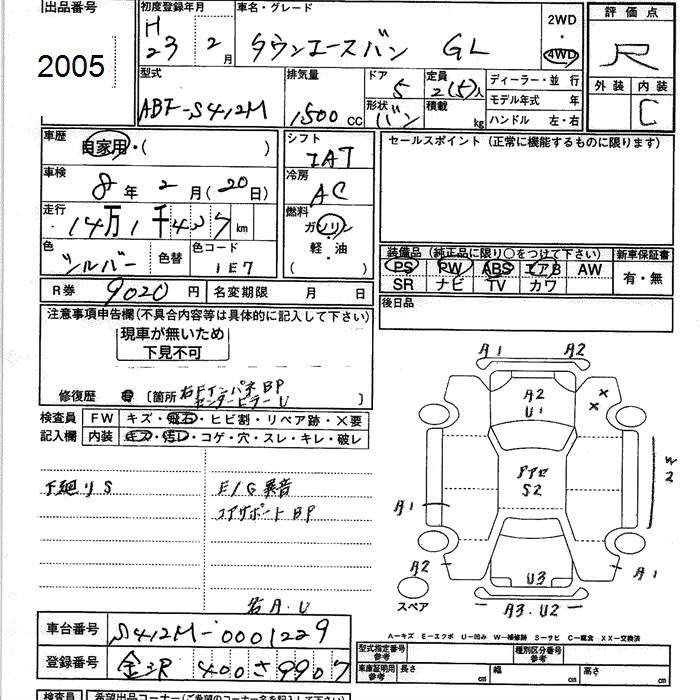 出品番号
2005
初度登録年月
H
23 2月
車名・グレード
タウンエースバン GL
2WD
・
4WD
評価点
R
外装 内装
C
型式
ABF-S412M
排気量
1500 CC
ドア
5
形状
バン
定員
2(5)人
積載 kg
ディーラー・並 行
モデル年式 年
ハンドル 左・右
車歴
自家用・( )
車検
8年 2月(20日)
走行
14万1千437km
色
シルバー
色替
色コード
1E7
シフト
IAT
冷房
AC
燃料
ガソリン
軽・油
( )
セールスポイント(正常に機能するものに限ります)
装備品(純正品に限り○をつけて下さい)
PS PW ABS エアB AW
SR ナビ TV カワ
新車保証書
有・無
後日品
R券 9020円
名変期限 月 日
注意事項申告欄(不具合内容等は具体的に記入して下さい)
現車が無いため
下見不可
修復歴 [箇所 右FインパネBP
センターピラーU ]
検査員
記入欄
FW キズ・飛石・ヒビ割・リペア跡・×要
内装 キズ・汚レ・コゲ・穴・スレ・キレ・破レ
下廻りS
E/G異音
コアサポートBP
右A.U
A1 A2
A2
U1
××
S2
W2
A1
A2
A1
U3
A3.U2
スペア
A-キズ E-エクボ U-凹み W-補修跡 S-サビ C-腐食 XX-交換済
車台番号 S412M-0001229
登録番号 金沢 400 さ 9907
型式指定番号
参考
種別区分番号
参考
車庫証明用
参考
長さ cm
幅 cm
高さ cm
検査員
希望出品コーナー(ご希望のコーナー名を記入して下さい)